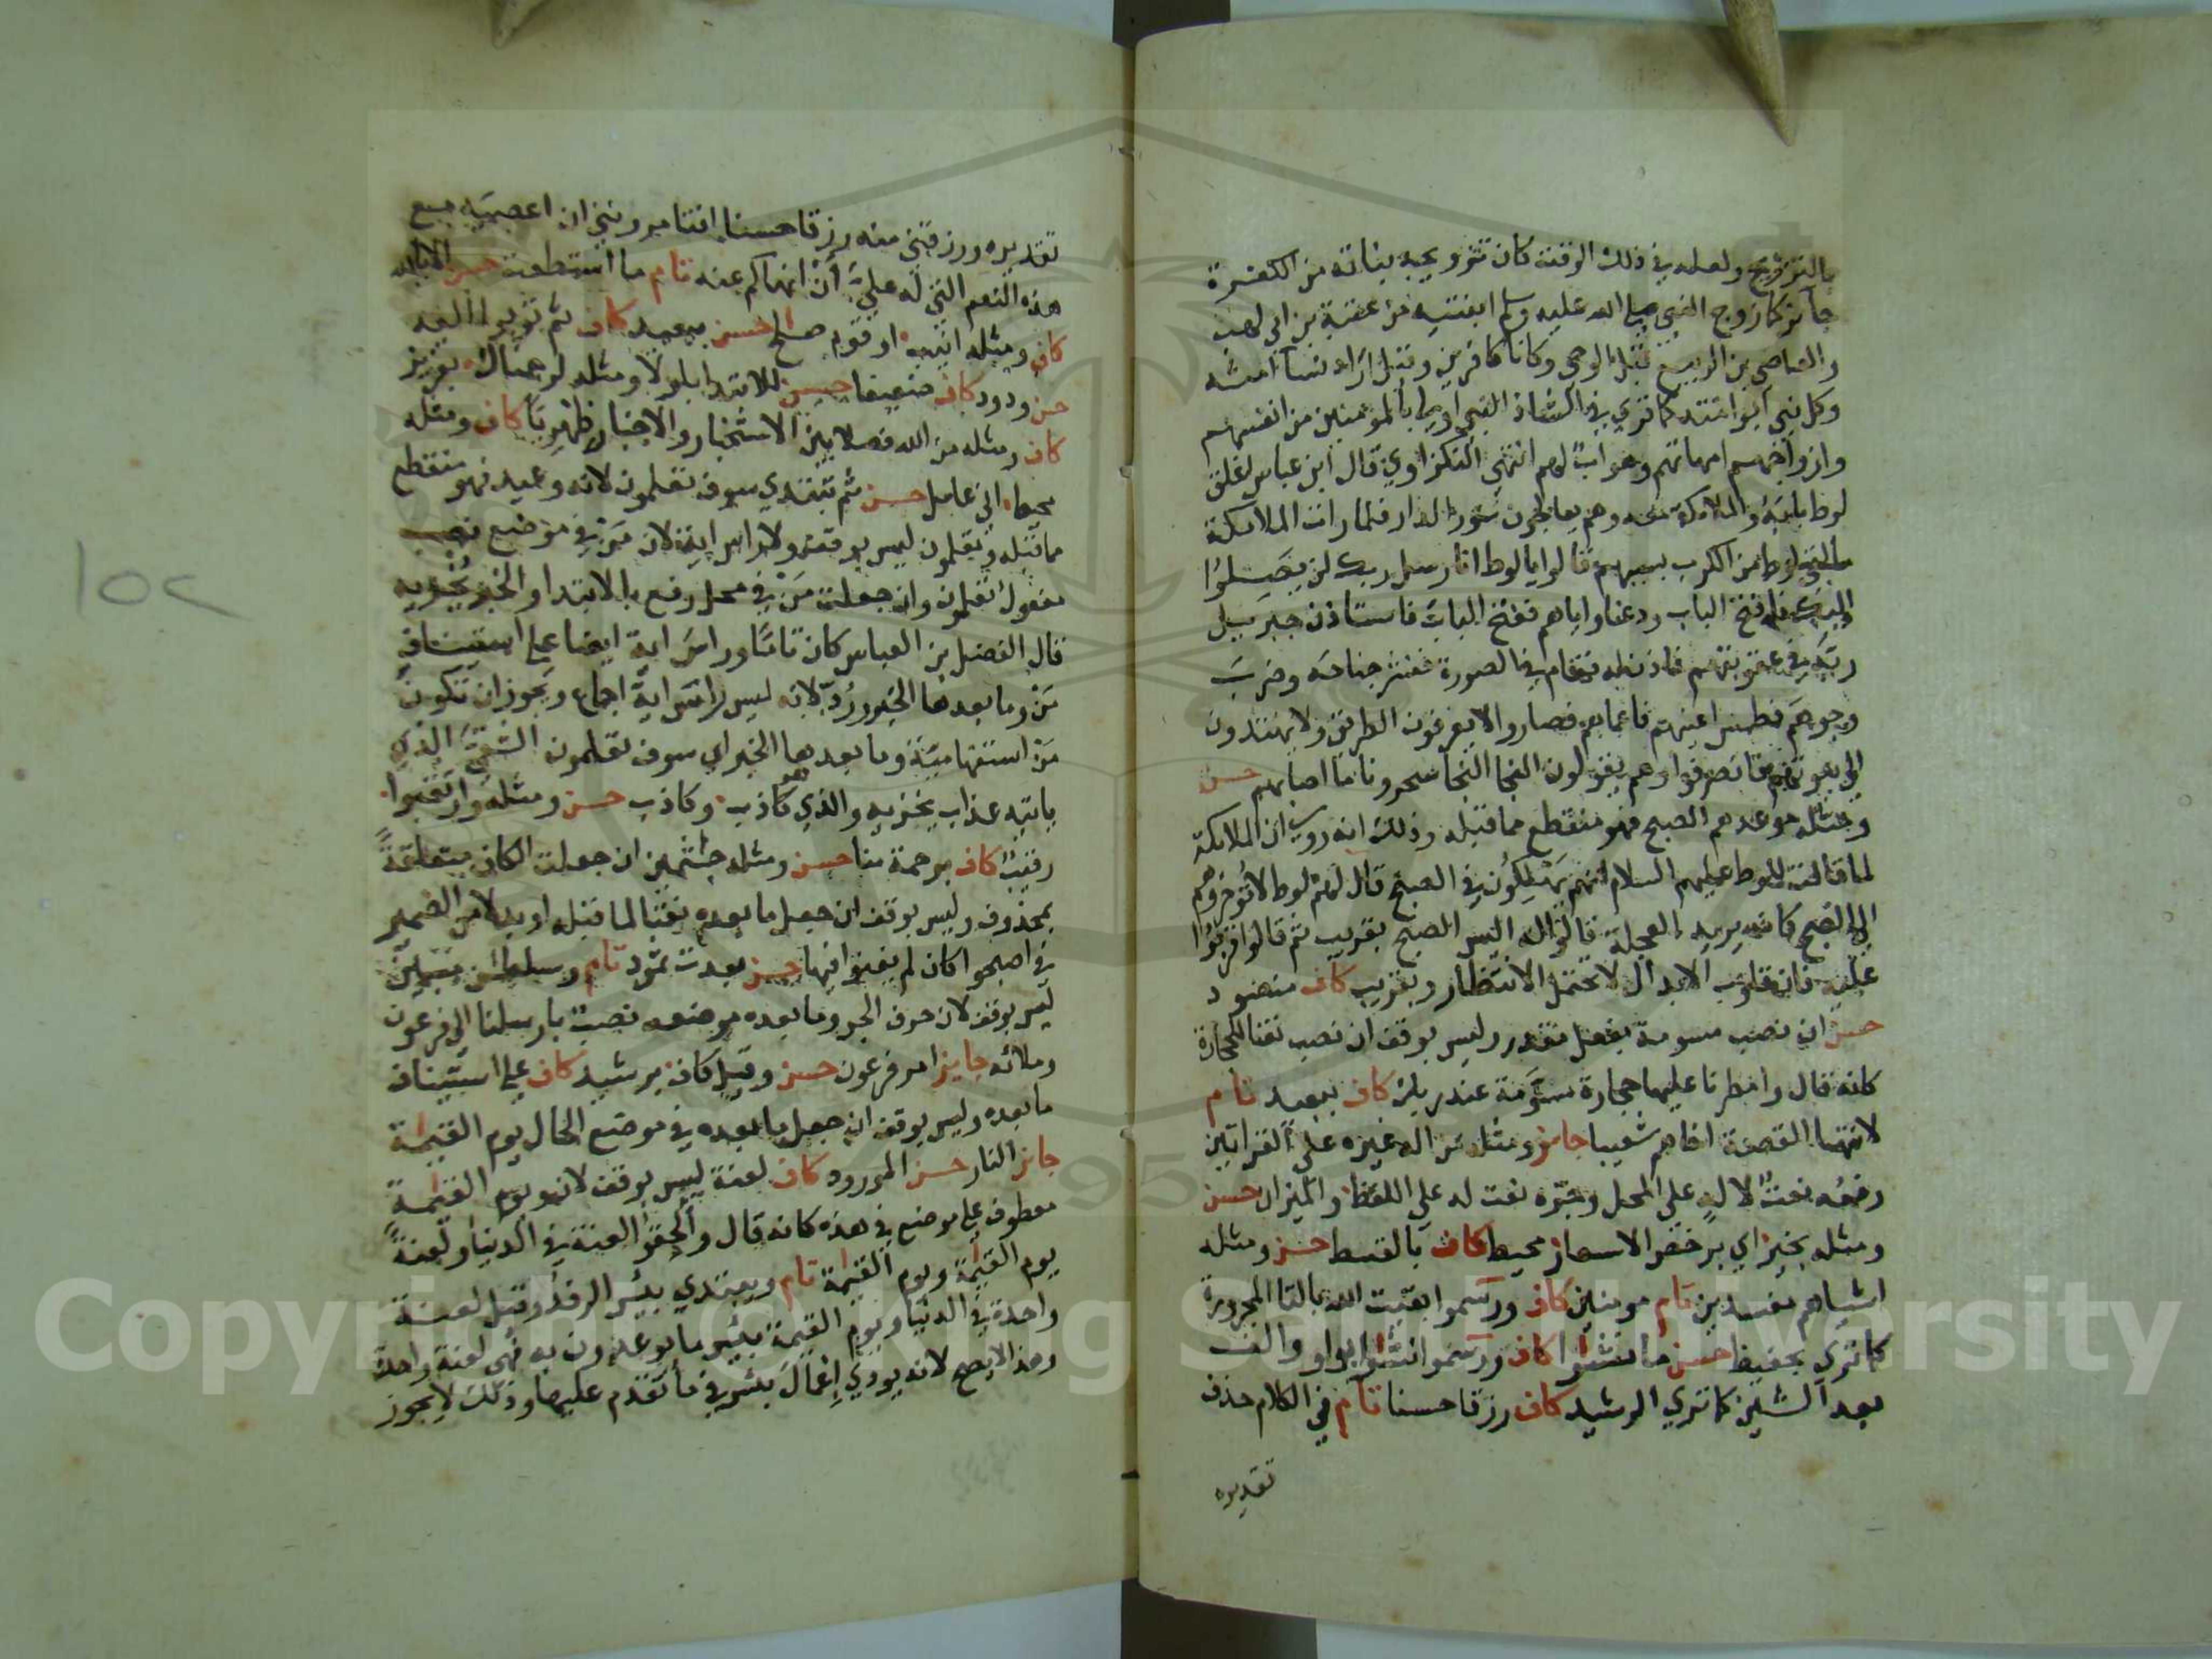 بالتزويج ولعله في ذلك الوقت كان تزويجه بناته من الكفرة
جائز كما زوج النبي صلى الله عليه وسلم ابنتيه من عتبة بن ابي لهب
والعاصي بن الربيع قبل الوحي وكانا كافرين وقيل اراد نساء امته
وكل نبي ابو امته كما قري في الشاذ النبي اولى بالمؤمنين من انفسهم
وازواجهم امهاتهم وهو اب لهم انتهى النكزاوي قال ابن عباس اغلق
لوط بابه والملائكة معه وهم يعالجون سور الدار فلما رات الملائكة
ما لقي لوط من الكرب بسببهم قالوا يا لوط انا رسل ربك لن يصلوا
اليك فافتح الباب ودعنا واياهم ففتح الباب فاستاذن جبريل
ربه في عقوبتهم فاذن له فقام في الصورة فنشر جناحه وضرب
وجوههم فطمس اعينهم فاعماهم فصاروا لا يعرفون الطريق ولا يهتدون
الى بيوتهم فانصرفوا وهم يقولون النجا النجا سحرونا ما اصابهم حسن
ومثله موعدهم الصبح فهو منقطع مما قبله وذلك انه روي ان الملائكة
لما قالت للوط عليهم السلام انهم يهلكون في الصبح قال لهم لوط لا تؤخروهم
الى الصبح كانه يريد العجلة قالوا له اليس الصبح بقريب ثم قالوا
فان قلوب الابدال لا تحتمل الانتظار وبقريب كاف منضود
حسن ان نصب مسومة بفعل مقدر وليس بوقف ان نصب نعتا لحجارة
كانه قال وامطرنا عليها حجارة مسومة عند ربك كاف ببعيد تام
لانتها القصة اخاهم شعيبا جائز ومثله من اله غيره على القراتين
رفعه نعت لاله على المحل وجره نعت له على اللفظ والميزان حسن
ومثله بخير اي برخص الاسعار محيط كاف بالقسط حسن ومثله
اشياهم مفسدين تام مومنين كاف ورسموا بقيت الله بالتا المجرورة
كما ترى بحفيظ حسن ما نشوا كاف ورسموا نشوا بواو والف
بعد الشين كما ترى الرشيد كاف رزقا حسنا تام في الكلام حذف
تقديره
تقديره ورزقني منه رزقا حسنا افتامرونني ان اعصيه مع
هذه النعم التي له علي ان انهاكم عنه تام ما استطعت حسن الا بالله
كاف ومثله انيب او قوم صالح حسن ببعيد كاف ثم توبوا اليه
حسن ودود كاف ضعيفا حسن للابتدا بلولا ومثله لرجمناك بعزيز
كاف ومثله من الله فصلا بين الاستخبار والاخبار ظهريا كاف ومثله
محيط اني عامل حسن ثم تبتدي سوف تعلمون لانه وعيد فهو منقطع
مما قبله وتعلمون ليس بوقف ولا راس اية لان من في موضع نصب
مفعول تعلمون وان جعلت من في محل رفع بالابتدا والخبر يخزيه
قال الفضل بن العباس كان تاما وراس اية ايضا على استيناف
من وما بعدها الخبر ورد بانه ليس راس اية اجماع ويجوز ان تكون
من استفهامية وما بعدها الخبر اي سوف تعلمون الشقي الذي
ياتيه عذاب يخزيه والذي هو كاذب وكاذب حسن ومثله وارتقبوا
رقيب كاف برحمة منا حسن ومثله جثمين ان جعلت الكاف متعلقة
بمحذوف وليس بوقف ان جعل ما بعده نعتا لما قبله او بدلا من الضمير
في اصبحوا كان لم يغنوا فيها حسن بعدت ثمود تام وسلطن مبين
ليس بوقف لان حرف الجر وما بعده موضعه نصب بارسلنا الى فرعون
وملائه جايز امر فرعون حسن وقيل كاف برشيد كاف على استيناف
ما بعده وليس بوقف ان جعل ما بعده في موضع الحال يوم القيمة
جائز النار حسن المورود كاف لعنة ليس بوقف لان ويوم القيمة
معطوف على موضع في هذه كانه قال والحقوا لعنة في الدنيا ولعنة
يوم القيمة ويوم القيمة تام ويبتدي بيس الرفد وقيل لعنة
واحدة في الدنيا ويوم القيمة بيس ما يوعدون به فهي لعنة واحدة
وهذا لا يصح لانه يودي اعمال بئس في ما تقدم عليها وذلك لا يجوز
١٥٢
Copyright © King Saud University